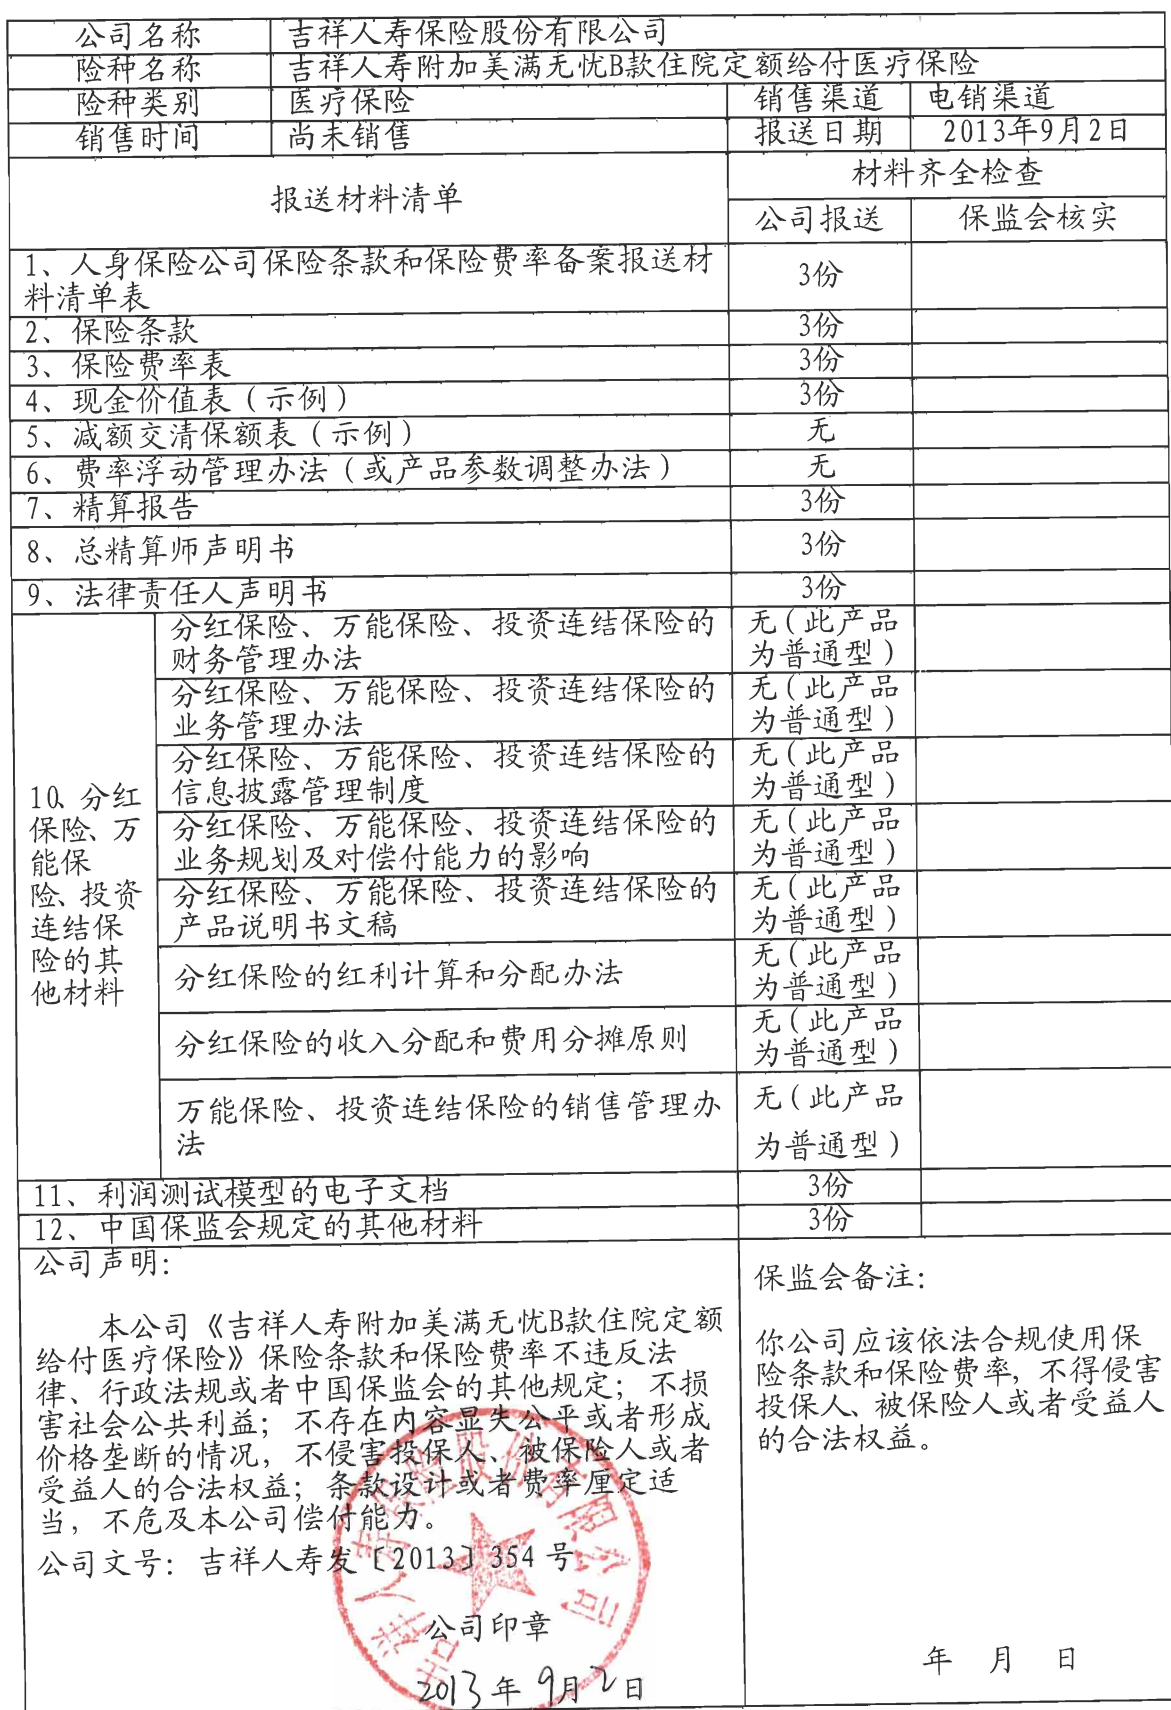 公司名称 吉祥人寿保险股份有限公司
险种名称 吉祥人寿附加美满无忧B款住院定额给付医疗保险
险种类别 医疗保险 销售渠道 电销渠道
销售时间 尚未销售 报送日期 2013年9月2日
报送材料清单 材料齐全检查
公司报送 保监会核实
1、人身保险公司保险条款和保险费率备案报送材
料清单表
3份
2、保险条款 3份
3、保险费率表 3份
4、现金价值表（示例） 3份
5、减额交清保额表（示例） 无
6、费率浮动管理办法（或产品参数调整办法） 无
7、精算报告 3份
8、总精算师声明书 3份
9、法律责任人声明书 3份
10、分红
保险、万
能保
险、投资
连结保
险的其
他材料
分红保险、万能保险、投资连结保险的
财务管理办法
无（此产品
为普通型）
分红保险、万能保险、投资连结保险的
业务管理办法
无（此产品
为普通型）
分红保险、万能保险、投资连结保险的
信息披露管理制度
无（此产品
为普通型）
分红保险、万能保险、投资连结保险的
业务规划及对偿付能力的影响
无（此产品
为普通型）
分红保险、万能保险、投资连结保险的
产品说明书文稿
无（此产品
为普通型）
分红保险的红利计算和分配办法
无（此产品
为普通型）
分红保险的收入分配和费用分摊原则
无（此产品
为普通型）
万能保险、投资连结保险的销售管理办
法
无（此产品
为普通型）
11、利润测试模型的电子文档 3份
12、中国保监会规定的其他材料 3份
公司声明：
本公司《吉祥人寿附加美满无忧B款住院定额
给付医疗保险》保险条款和保险费率不违反法
律、行政法规或者中国保监会的其他规定；不损
害社会公共利益；不存在内容显失公平或者形成
价格垄断的情况，不侵害投保人、被保险人或者
受益人的合法权益；条款设计或者费率厘定适
当，不危及本公司偿付能力。
公司文号：吉祥人寿发〔2013〕354 号
吉祥人寿保险股份有限公司
公司印章
2013 年 9月2日
保监会备注：
你公司应该依法合规使用保
险条款和保险费率，不得侵害
投保人、被保险人或者受益人
的合法权益。
年 月 日